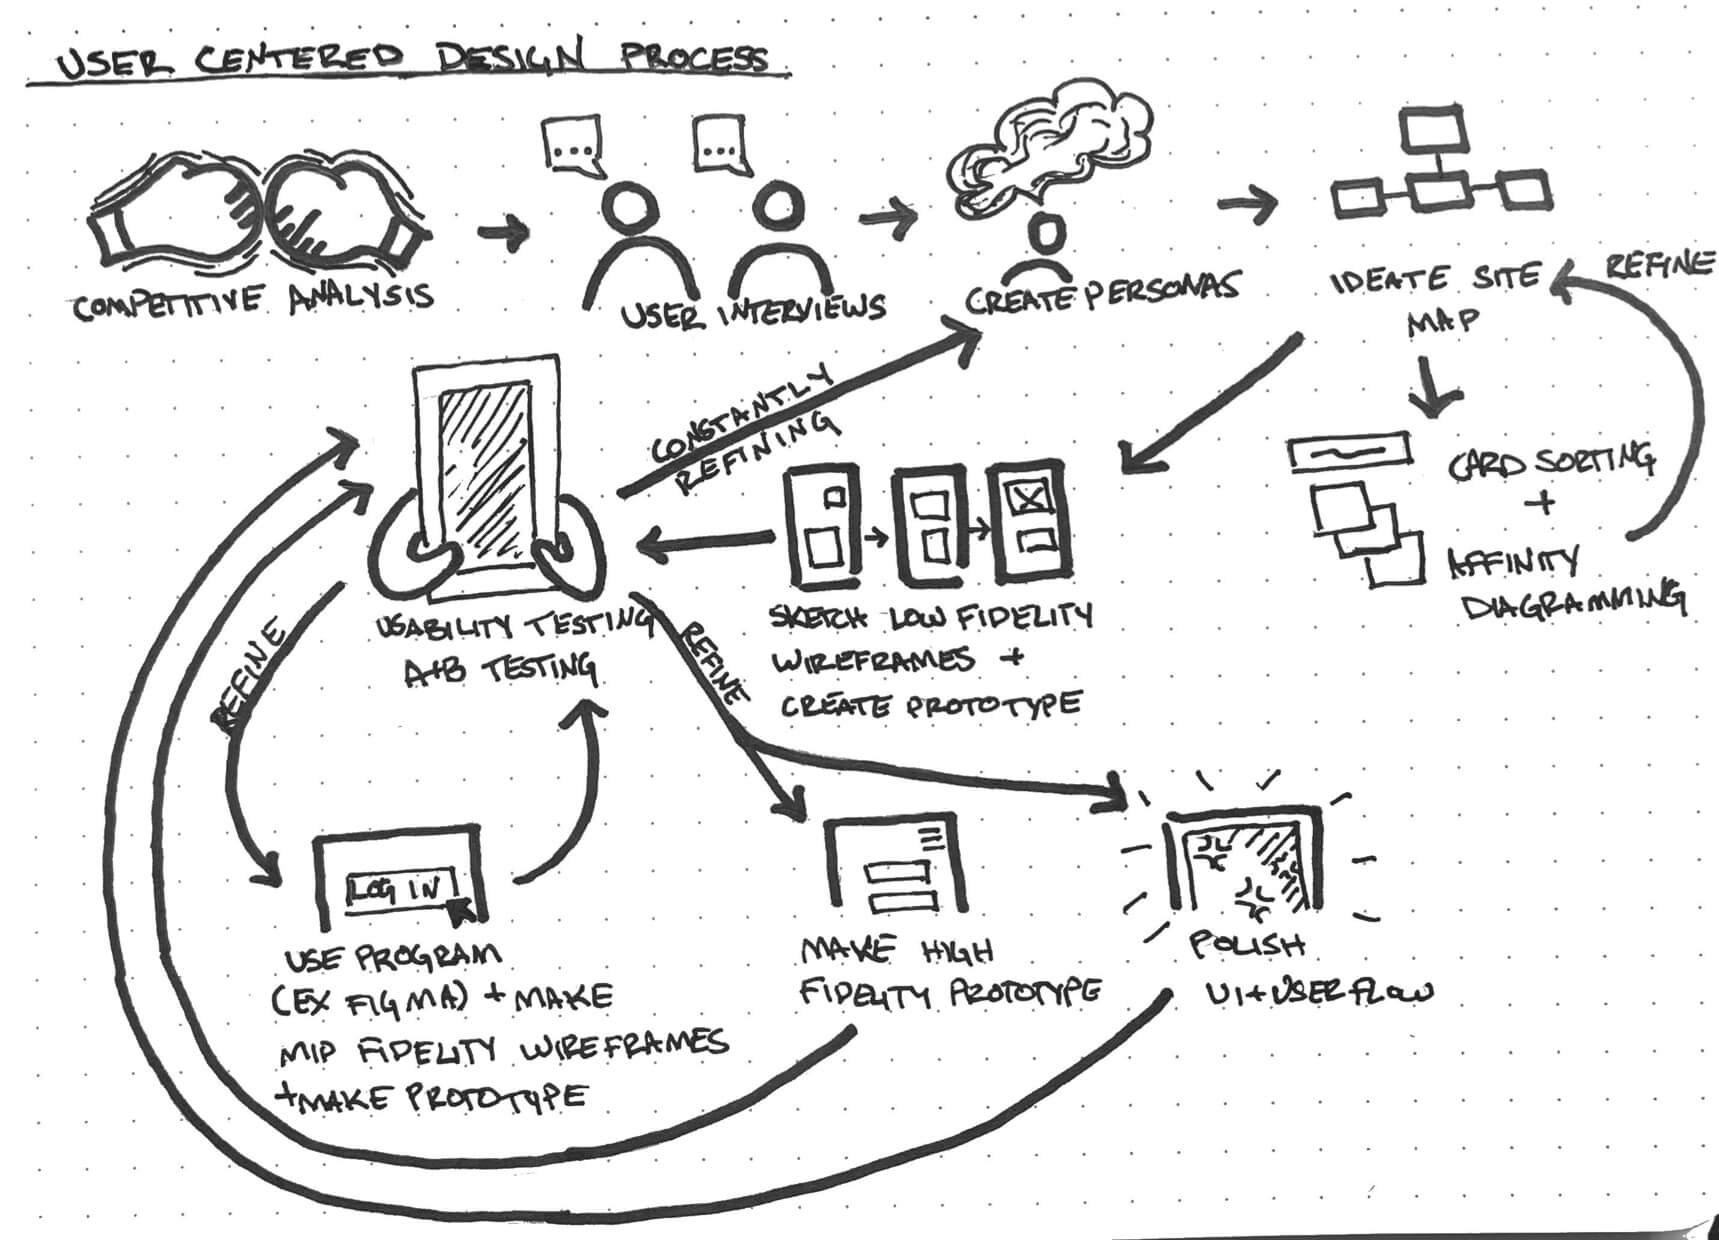 USER CENTERED DESIGN PROCESS
...
...
COMPETITIVE ANALYSIS
USER INTERVIEWS
CREATE PERSONAS
IDEATE SITE
MAP
REFINE
CONSTANTLY
REFINING
CARD SORTING
+
AFFINITY
DIAGRAMMING
USABILITY TESTING
A+B TESTING
SKETCH LOW FIDELITY
WIREFRAMES +
CREATE PROTOTYPE
REFINE
REFINE
LOG IN
USE PROGRAM
(EX FIGMA) + MAKE
MID FIDELITY WIREFRAMES
+MAKE PROTOTYPE
MAKE HIGH
FIDELITY PROTOTYPE
POLISH
UI+USERFLOW